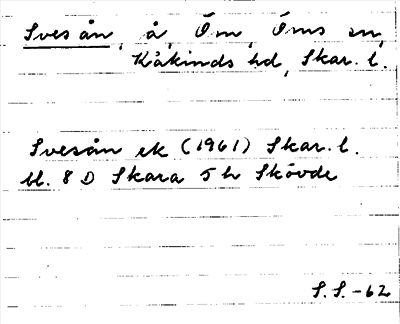 Svesån, å, Öm, Öms sn,
Kåkinds hd, Skar. l.
Svesån ek (1961) Skar. l.
bl. 8 D Skara 5 h Skövde
S.S.-62